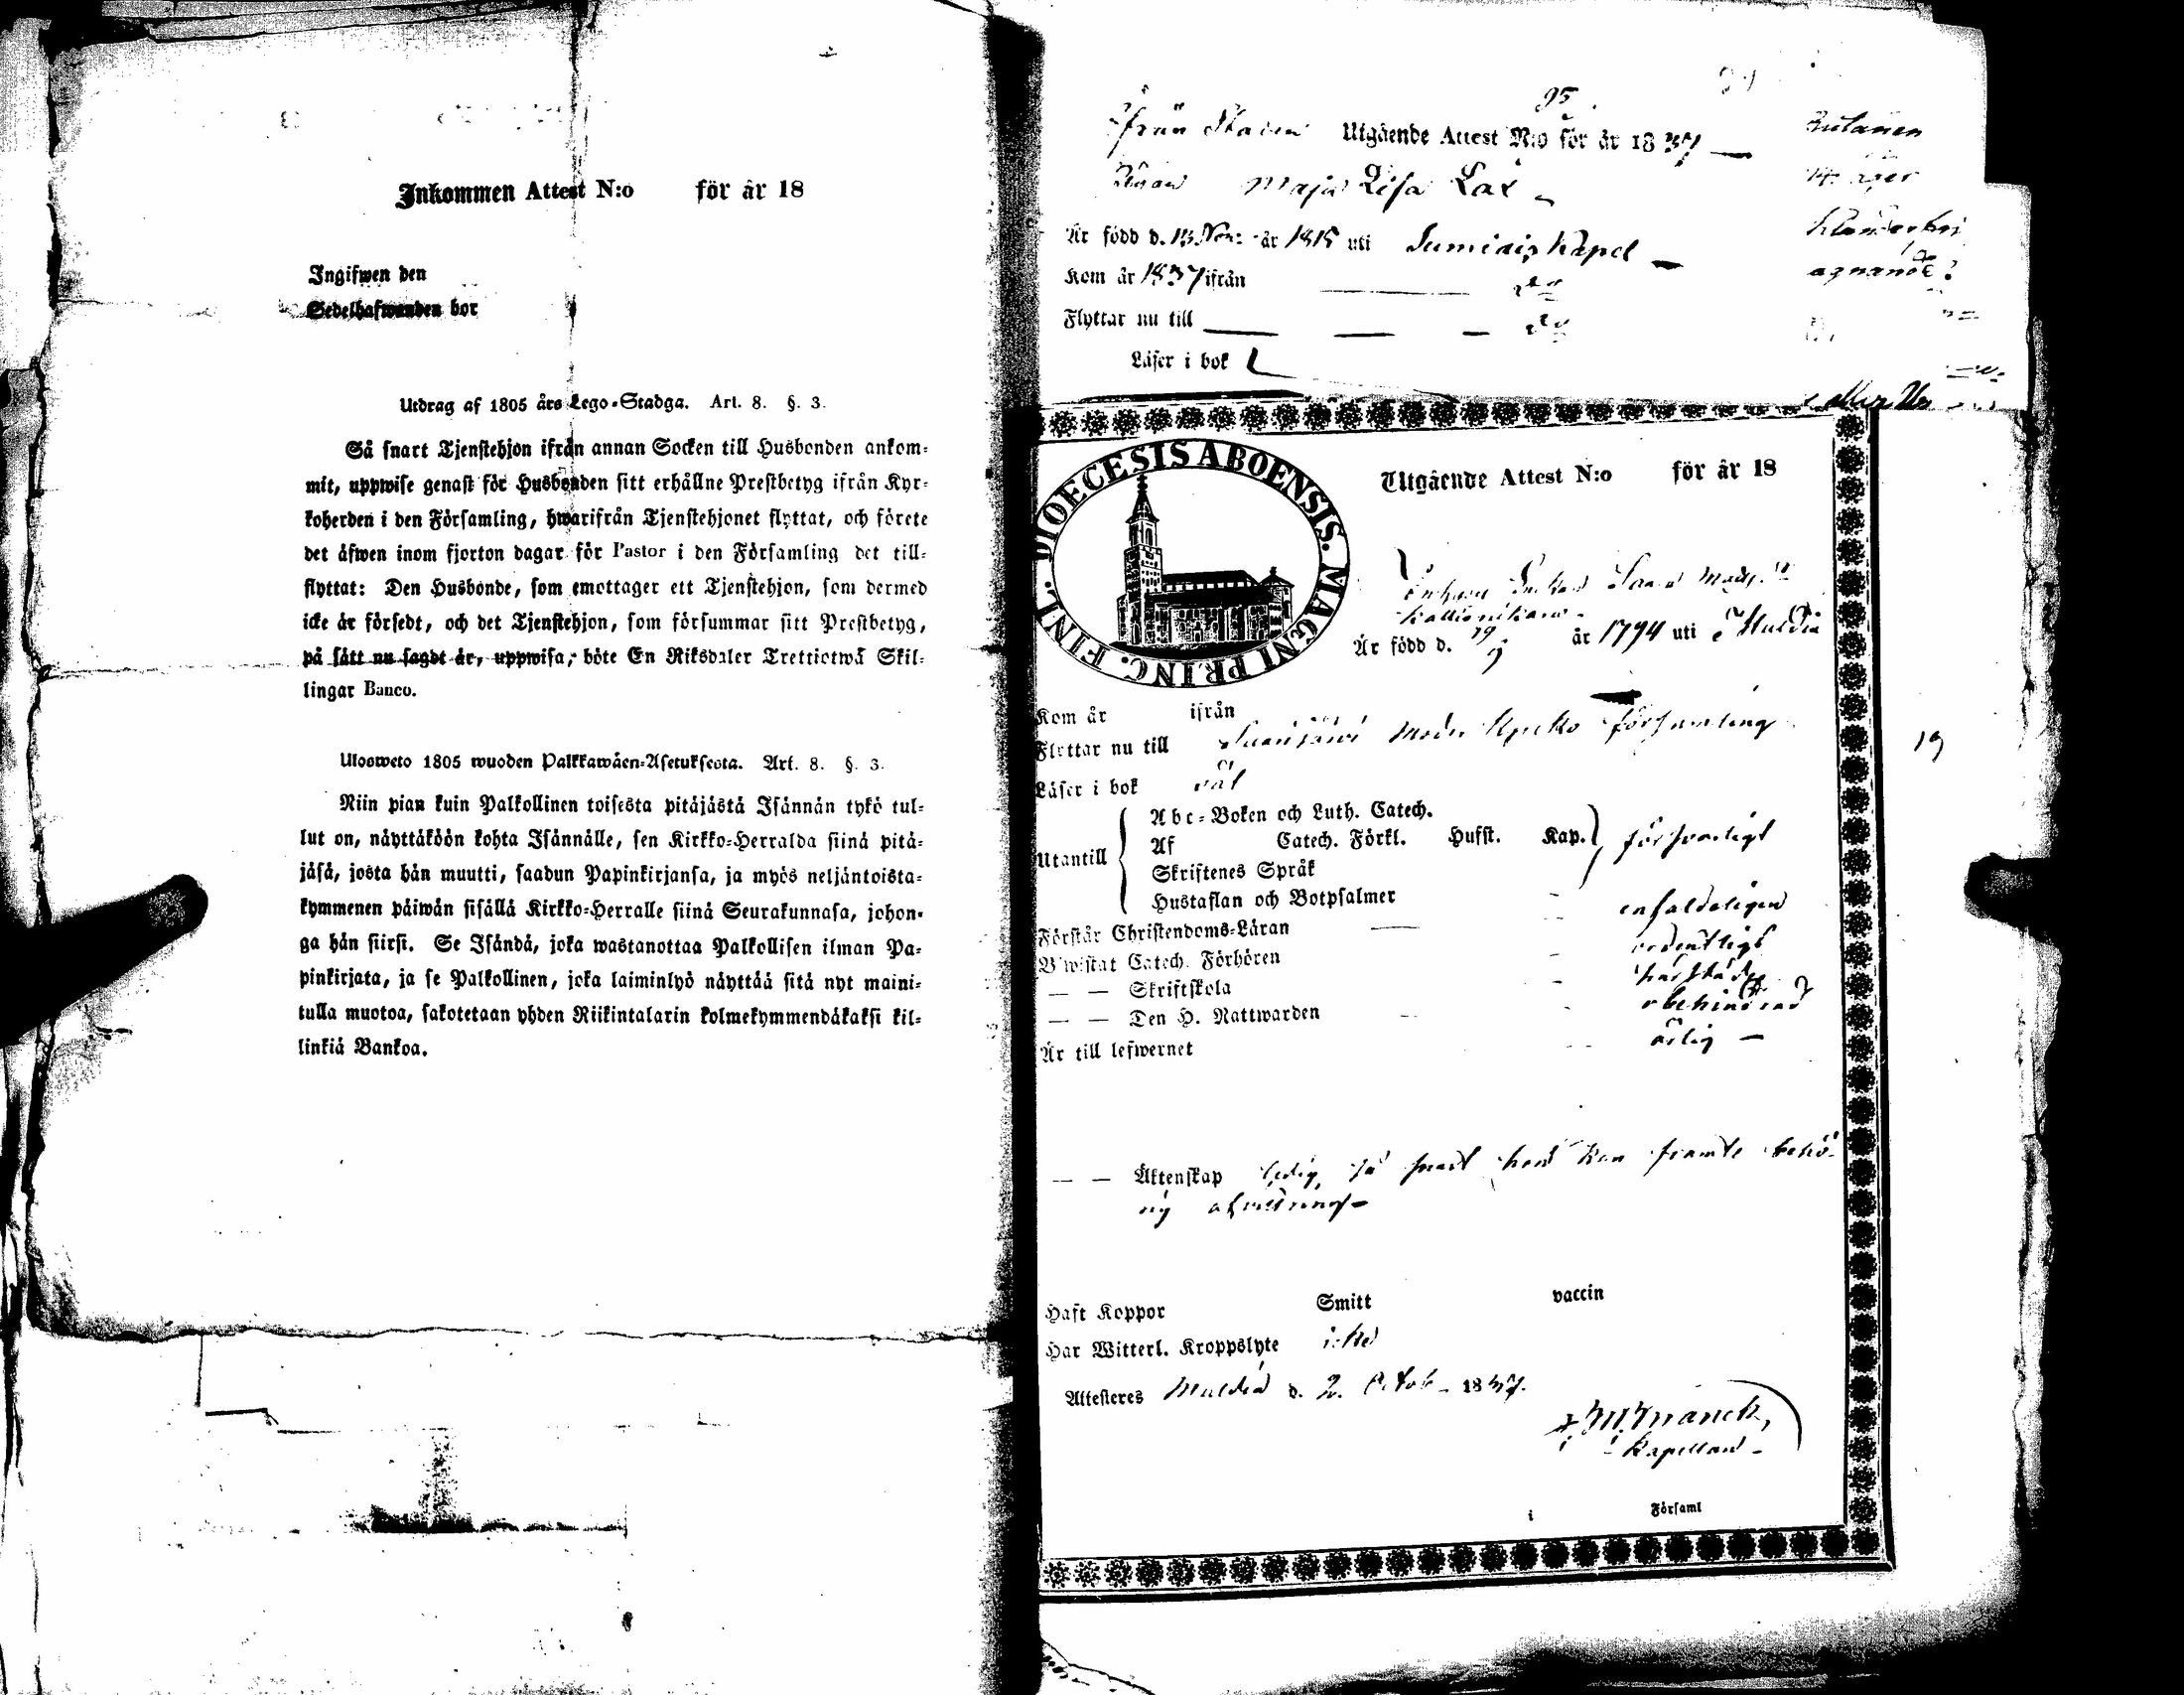 Inkommen Attest N:o för år 18
Ingifwen den
Sedelhafwanden bor
Utdrag af 1805 års Lego-Stadga. Art. 8. §. 3.
Så snart Tjenstehjon ifrån annan Socken till Husbonden ankom-
mit, uppwise genast för Husbonden sitt erhållne Prestbetyg ifrån Kyr-
koherden i den Församling, hwarifrån Tjenstehjonet flyttat, och förete
det äfwen inom fjorton dagar för Pastor i den Församling det till-
flyttat: Den Husbonde, som emottager ett Tjenstehjon, som dermed
icke är försedt, och det Tjenstehjon, som försummar sitt Prestbetyg,
på sätt nu sagdt är, uppwisa, böte En Riksdaler Trettiotwå Skil-
lingar Banco.
Ulosweto 1805 wuoden Palkkawäen-Asetuksesta. Art. 8. §. 3.
Niin pian kuin Palkollinen toisesta pitäjästä Isännän tykö tul-
lut on, näyttäköön kohta Isännälle, sen Kirkko-Herralda siinä pitä-
jäsä, josta hän muutti, saadun Papinkirjansa, ja myös neljäntoista-
kymmenen päiwän sisällä Kirkko-Herralle siinä Seurakunnasa, johon-
ga hän siirsi. Se Isändä, joka wastanottaa Palkollisen ilman Pa-
pinkirjata, ja se Palkollinen, joka laiminlyö näyttää sitä nyt maini-
tulla muotoa, sakotetaan yhden Riikintalarin kolmekymmendäkaksi kil-
linkiä Bankoa.
95
från Staden Utgående Attest N:o för år 1837
Pigan Maja Lisa Lax
Är född d. 13 Nov: år 1815 uti Sumiais Kapel
Kom år 1837 ifrån
Flyttar nu till
Läser i bok
DIOECESIS ABOENSIS. MAGNI PRINC. FINL.
Utgående Attest N:o för år 18
Enkan
Är född d. 19/9 år 1794 uti Multia
Kom år ifrån
Flyttar nu till Saarijärvi Moder Kyrko församling
Läser i bok väl
Utantill
Abc-Boken och Luth. Catech.
Af Catech. Förkl. Husst. Kap. försvarligt
Skriftenes Språk
Hustaflan och Botpsalmer
Förstår Christendoms-Läran enfaldeligen
Biwistat Catech. Förhören ordentligt
— — Skriftskola härstädes
— — Den H. Nattwarden obehindrad
Är till lefwernet ärlig
— — Äktenskap ledig, så snart hon kan framte behö-
rig afwittring
Haft Koppor Smitt vaccin
Har Witterl. Kroppslyte icke
Attesteres Multia d. 2. Octob. 1837.
Kapellan
i Församl
19